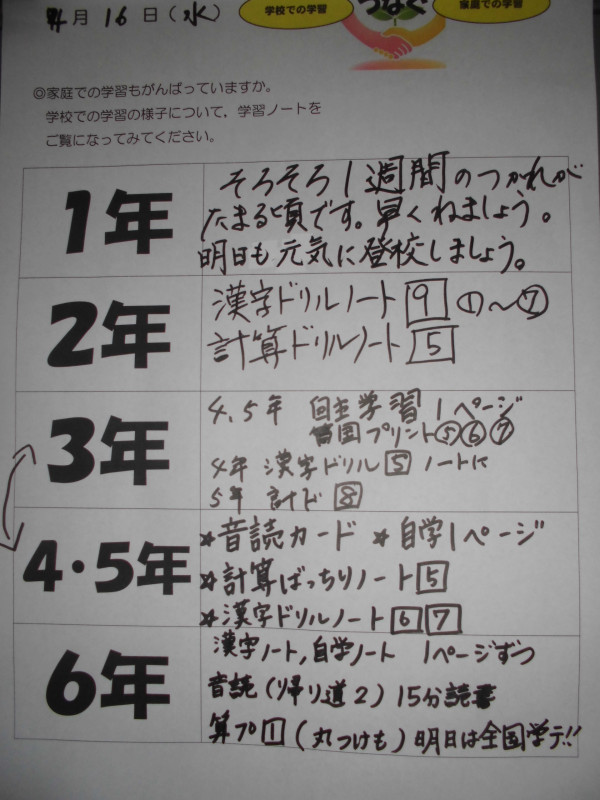 4月16日(水)
学校での学習
つなぐ
家庭での学習
◎家庭での学習もがんばっていますか。
学校での学習の様子について，学習ノートを
ご覧になってみてください。
1年
そろそろ1週間のつかれが
たまる頃です。早くねましょう。
明日も元気に登校しましょう。
2年
漢字ドリルノート 9 ①〜⑦
計算ドリルノート 5
3年
4、5年 自主学習1ページ
プリント⑤⑥⑦
4年 漢字ドリル 5 ノートに
5年 計ド 8
4・5年
*音読カード *自学1ページ
*計算ばっちりノート 5
*漢字ドリルノート 6 7
6年
漢字ノート,自学ノート 1ページずつ
音読(帰り道2) 15分読書
算プ 1 (丸つけも) 明日は全国学テ!!